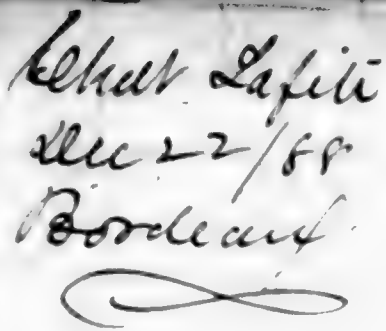 Lafite
Dec 22/88
Bordeaux